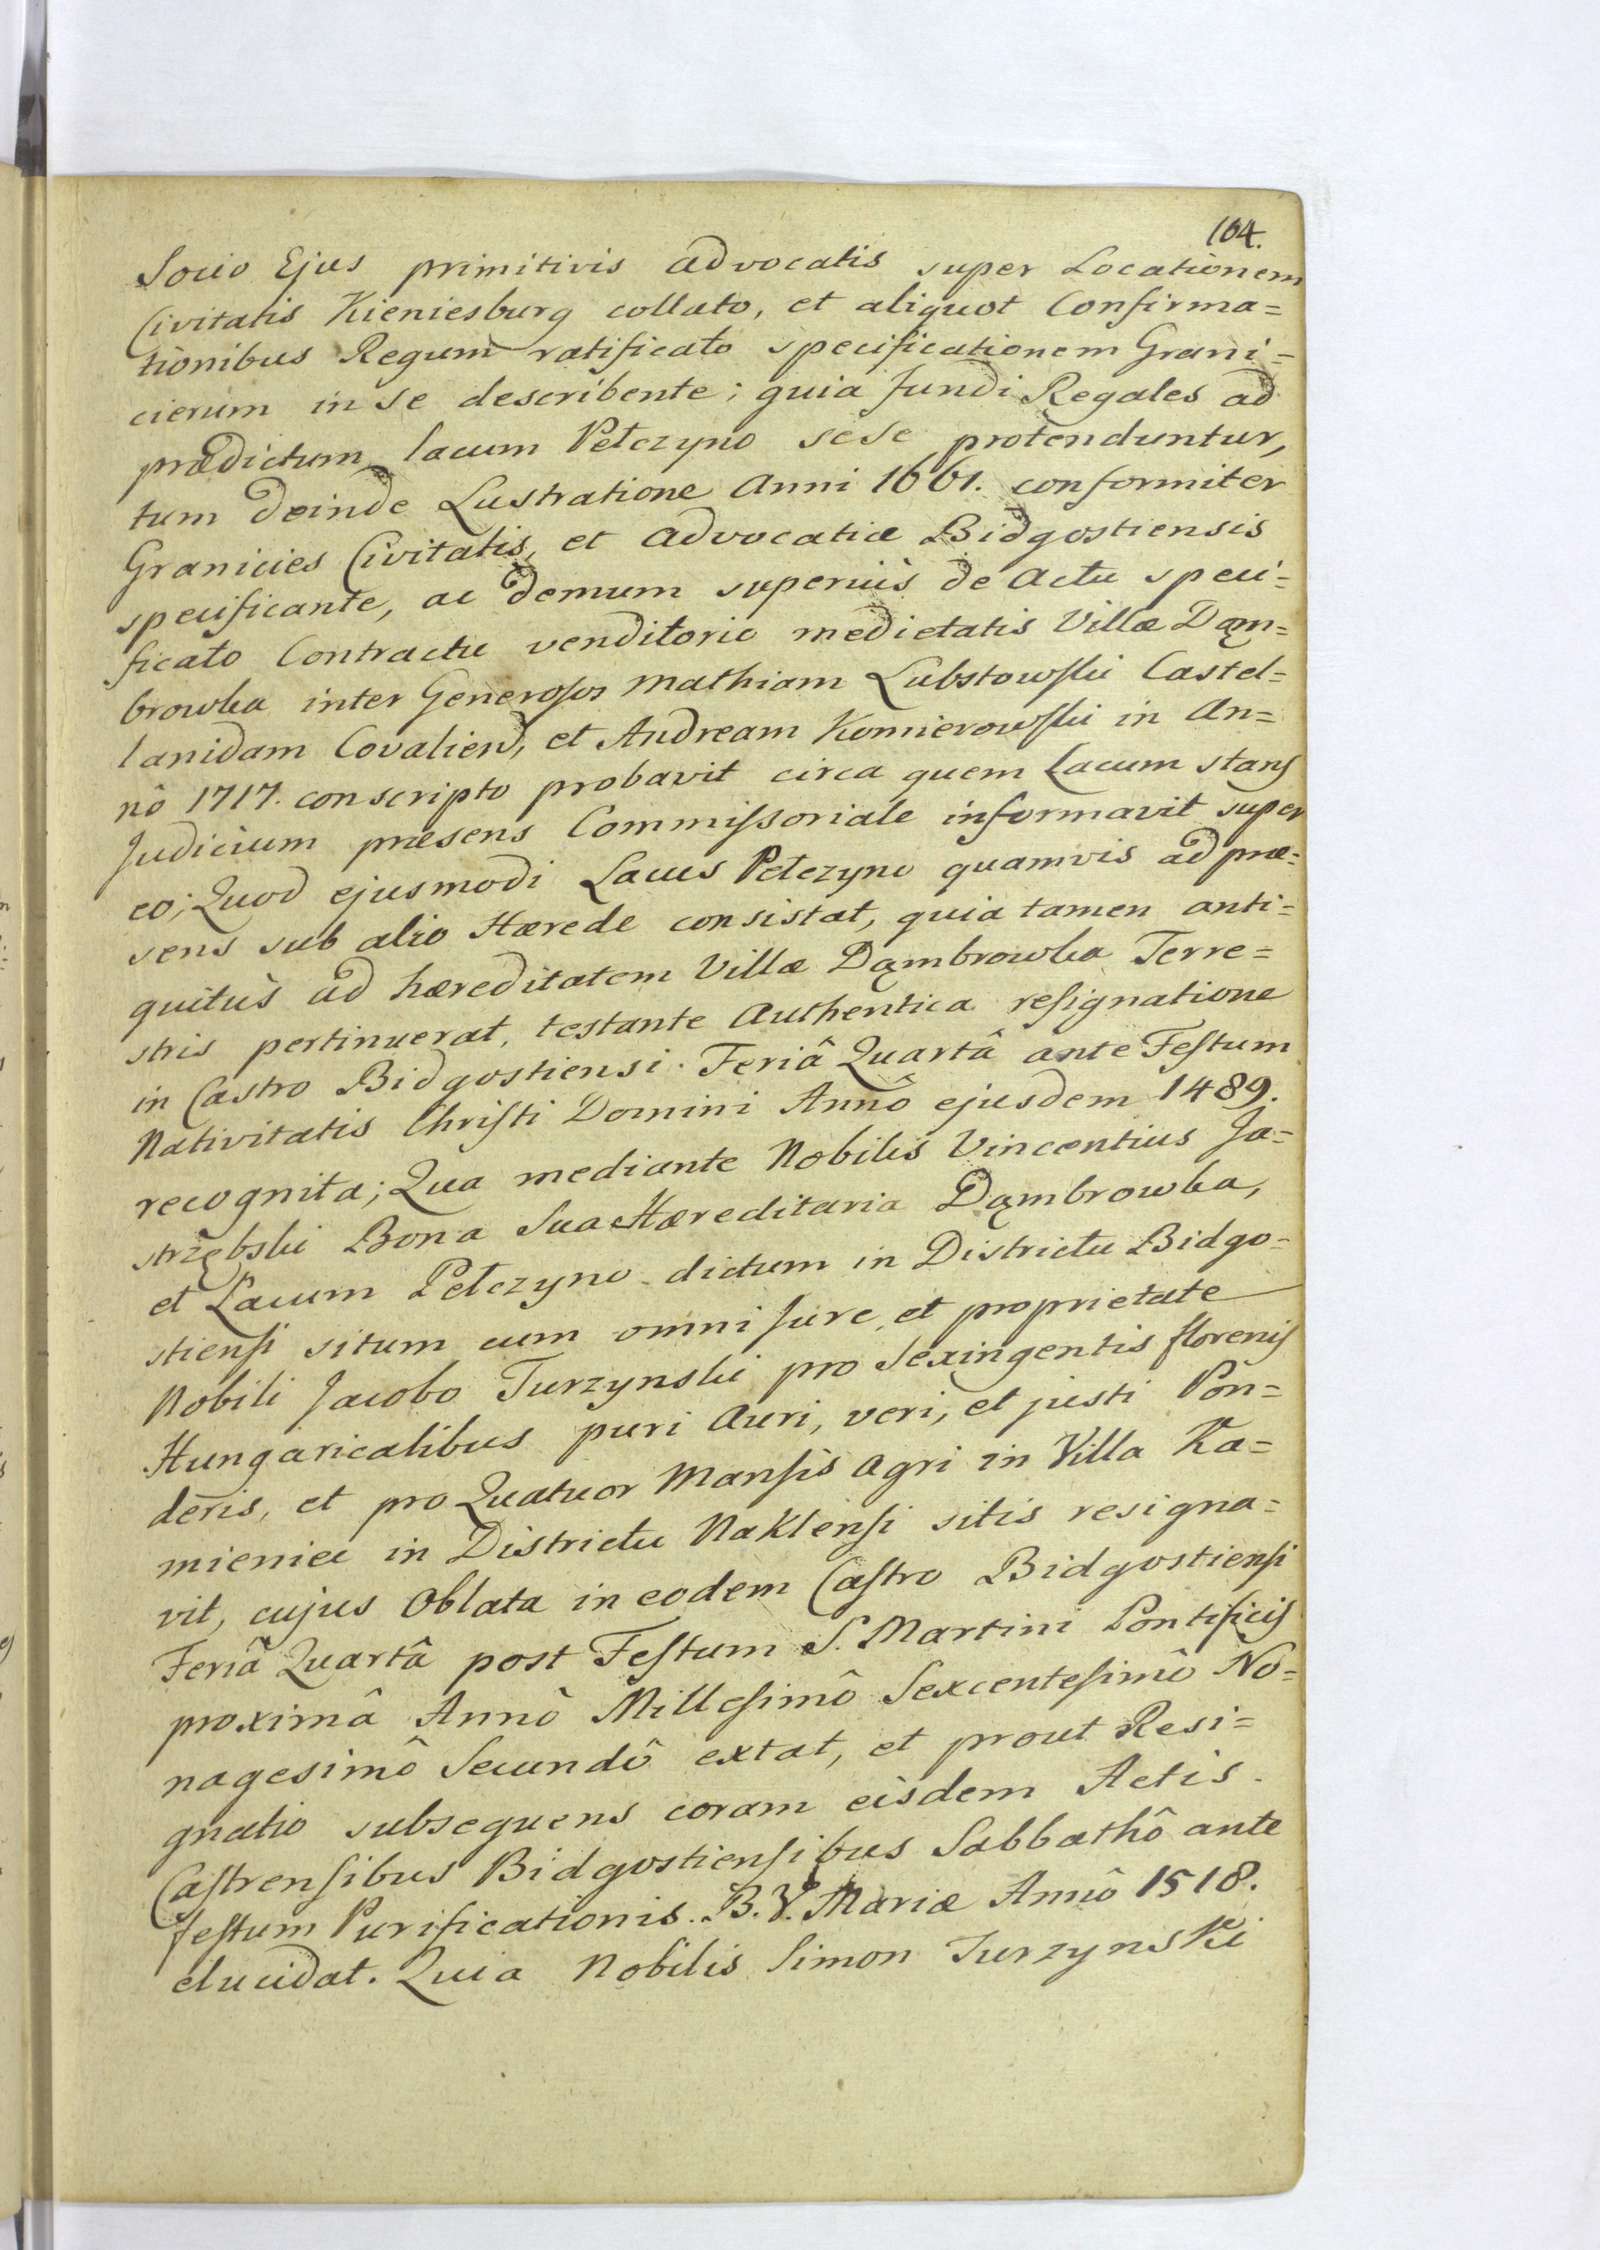 104.
Socio Ejus primitivis advocatis super Locationem
Civitatis Kieniesburg collato, et aliquot Confirma=
tionibus Regum ratificato specificationem Grani=
cierum in se describente; quia fundi Regales ad
prædictum lacum Pełczyno sese protenduntur,
tum deinde Lustratione Anni 1661. conformiter
Granicies Civitatis, et Advocatiæ Bidgostiensis
specificante, ac demum superiùs de Actu speci=
ficato Contractu venditorio medietatis Villæ Dąm=
browka inter Generosos Mathiam Lubstowski Castel=
lanidam Covalien, et Andream Komierowski in An=
nô 1717. conscripto probavit circa quem Lacum stans
Judicium præsens Commissoriale informavit super
eo; Quod ejusmodi Lacus Pełczyno quamvis ad præ=
sens sub alio Hærede consistat, quia tamen anti=
quitùs ad hæreditatem Villæ Dąmbrowka Terre=
stris pertinuerat, testante Authentica resignatione
in Castro Bidgostiensi. Feriâ Quartâ ante Festum
Nativitatis Christi Domini Annô ejusdem 1489.
recognita; Qua mediante Nobilis Vincentius Ja=
strzębski Bona Sua Hæreditaria Dąmbrowka,
et Lacum Pełczyno dictum in Districtu Bidgo=
stiensi situm cum omni Jure, et proprietate
Nobili Jacobo Turzynski pro Sexingentis florenis
Hungaricalibus puri Auri, veri, et justi Pon=
deris, et pro Quatuor Mansis agri in Villa Ka=
mieniec in Districtu Naklensi sitis resigna=
vit, cujus Oblata in eodem Castro Bidgostiensi
Feriâ Quartâ post Festum S. Martini Pontificis
proximâ Annô Millesimô Sexcentesimô No=
nagesimô Secundô extat, et prout Resi=
gnatio subsequens coram eisdem Actis
Castrensibus Bidgostiensibus Sabbathô ante
festum Purificationis. B. V. Mariæ Annô 1518.
elucidat. Quia Nobilis Simon Turzynski